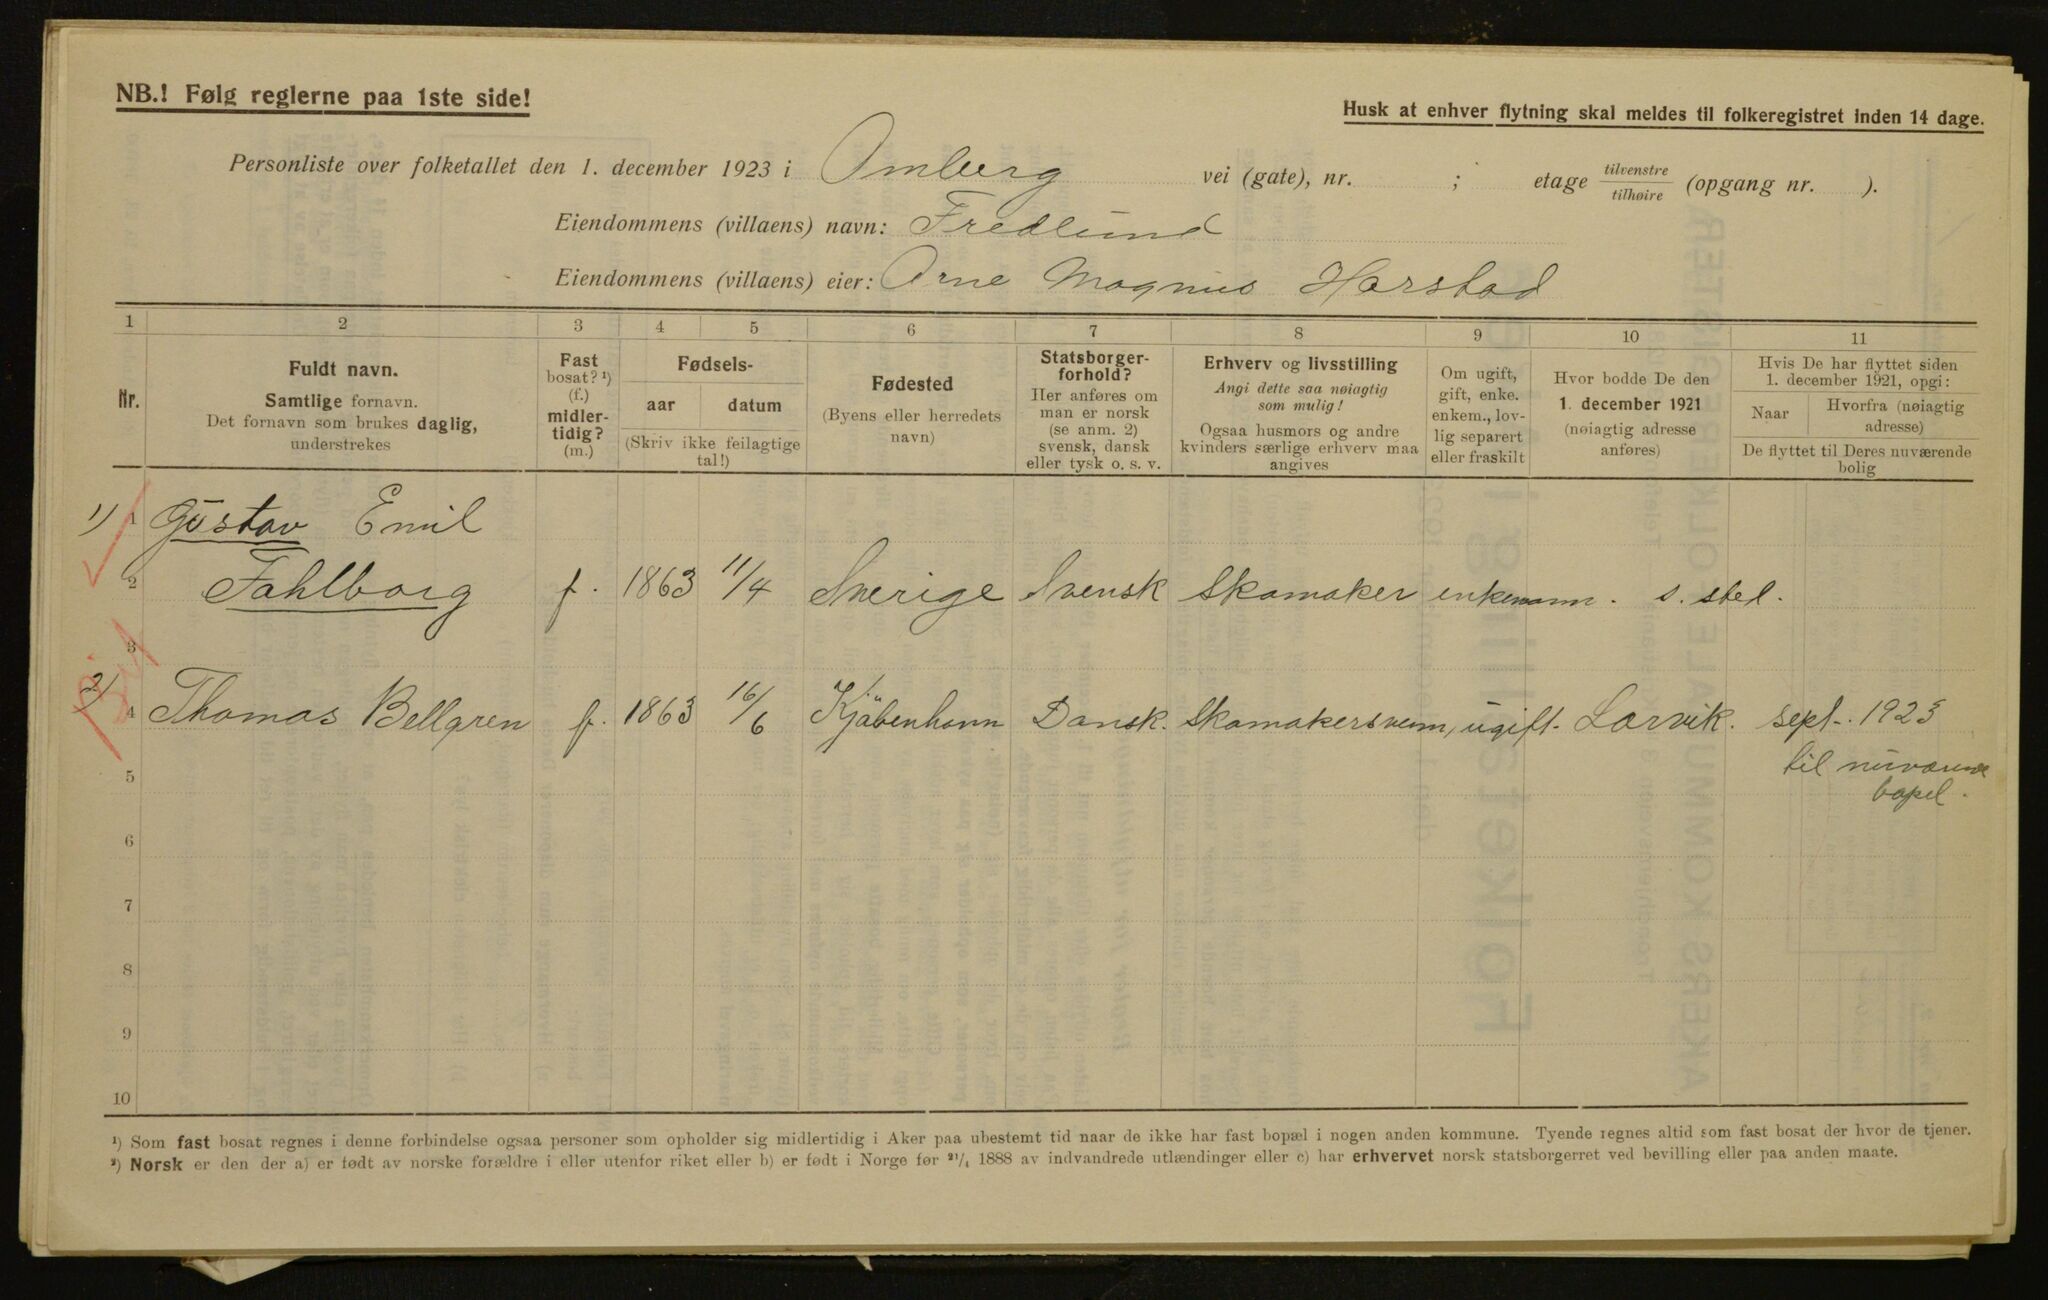 NB.! Følg reglerne paa 1ste side!
Husk at enhver flytning skal meldes til folkeregistret inden 14 dage.
Personliste over folketallet den 1. december 1923 i Omberg vei (gate), nr. ; etage tilvenstre/tilhøire (opgang nr. ).
Eiendommens (villaens) navn: Fredlund
Eiendommens (villaens) eier: Arne Magnus Harstad
1 2 3 4 5 6 7 8 9 10 11
Nr.
Fuldt navn.
Samtlige fornavn.
Det fornavn som brukes daglig,
understrekes
Fast
bosat? ¹)
(f.)
midler-
tidig?
(m.)
Fødsels-
aar datum
(Skriv ikke feilagtige
tal!)
Fødested
(Byens eller herredets
navn)
Statsborger-
forhold?
Her anføres om
man er norsk
(se anm. 2)
svensk, dansk
eller tysk o. s. v.
Erhverv og livsstilling
Angi dette saa nøiagtig
som mulig!
Ogsaa husmors og andre
kvinders særlige erhverv maa
angives
Om ugift,
gift, enke.
enkem., lov-
lig separert
eller fraskilt
Hvor bodde De den
1. december 1921
(nøiagtig adresse
anføres)
Hvis De har flyttet siden
1. december 1921, opgi:
Naar
Hvorfra (nøiagtig
adresse)
De flyttet til Deres nuværende
bolig
1) 1 Gustav Emil
2 Fahlborg f. 1863 11/4 Sverige Svensk Skomaker enkemann. s. sted.
3
2) 4 Thomas Bellgren f. 1863 16/6 Kjöbenhavn Dansk. Skomakersvenn, ugift. Larvik. sept. 1923
til nuværende
5
bopel.
6
7
8
9
10
¹) Som fast bosat regnes i denne forbindelse ogsaa personer som opholder sig midlertidig i Aker paa ubestemt tid naar de ikke har fast bopæl i nogen anden kommune. Tyende regnes altid som fast bosat der hvor de tjener.
²) Norsk er den der a) er født av norske forældre i eller utenfor riket eller b) er født i Norge før ²¹/₄ 1888 av indvandrede utlændinger eller c) har erhvervet norsk statsborgerret ved bevilling eller paa anden maate.